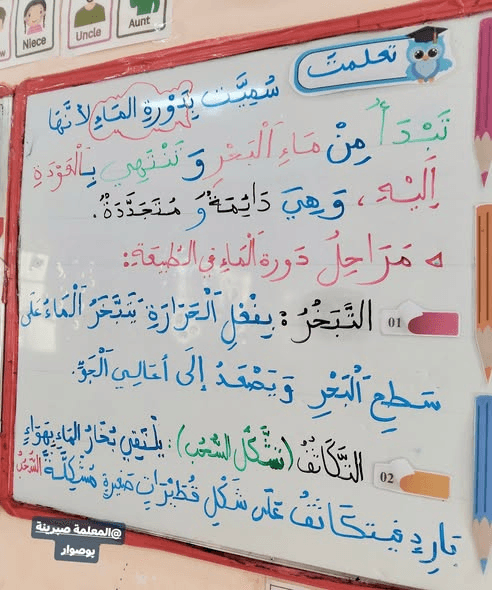 Niece
Uncle
Aunt
تعلمت
سُمِيَّت بِدَوْرةِ الماءِ لأنَّها
تَبْدَأُ مِنْ مَاءِ الْبَحْرِ وَ تَنْتَهِي بِالْعَوْدَةِ
إِلَيْهِ، وَهِيَ دَائِمَةٌ وَ مُتَجَدِّدَةٌ.
مَرَاحِلُ دَورةِ الْمَاءِ فِي الطَّبِيعَةِ:
01 التَّبَخُّرُ: بِفِعْلِ الْحَرَارَةِ يَتَبَخَّرُ الْمَاءُ عَلَى
سَطْحِ الْبَحْرِ وَيَصْعَدُ إِلَى أَعَالِي الْجَوِّ.
02 التَّكَاثُفُ (تَشَكُّلُ السُّحُبِ): يَلْتَقِي بُخَارُ الماءِ بِهَوَاءٍ
بَارِدٍ فَيَتَكَاثَفُ عَلَى شَكْلِ قُطَيْرَاتٍ صَغِيرَةٍ مُشَكِّلَةً السُّحُبَ
@المعلمة صبرينة
بوصوار